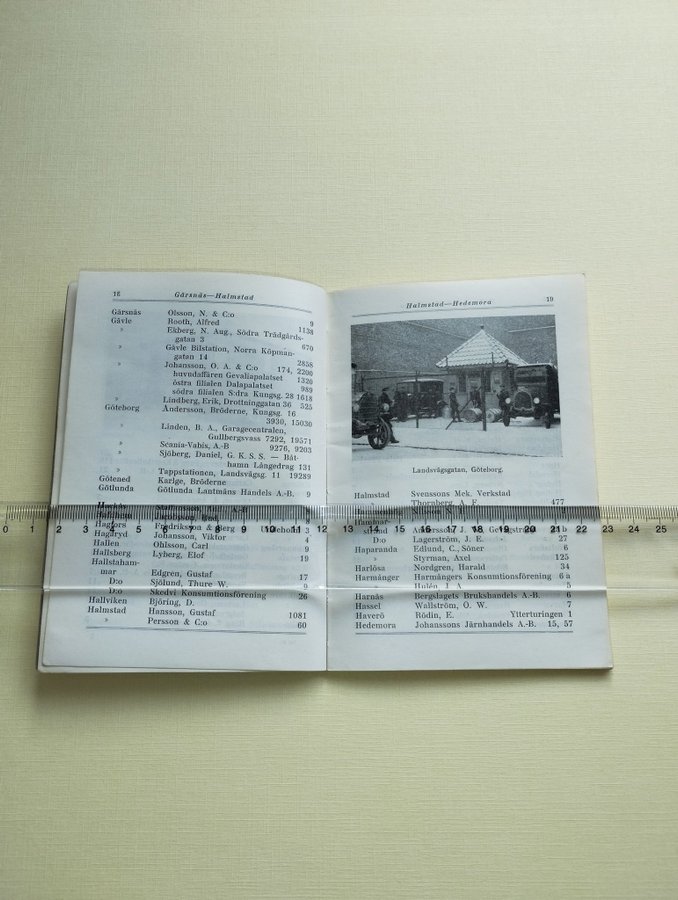 18
Gärsnäs—Halmstad
Gärsnäs Olsson, N. & C:o 9
Gävle Rooth, Alfred 1138
» Ekberg, N. Aug., Södra Trädgårds-
gatan 3 670
» Gävle Bilstation, Norra Köpman-
gatan 14 2858
» Johansson, O. A. & C:o 174, 2200
huvudaffären Gevaliapalatset 1320
östra filialen Dalapalatset 989
södra filialen S:dra Kungsg. 28 1618
» Lindberg, Erik, Drottninggatan 36 525
Göteborg Andersson, Bröderne, Kungsg. 16
3930, 15030
» Linden, B. A., Garagecentralen,
Gullbergsvass 7292, 19571
» Scania-Vabis, A.-B 9276, 9203
» Sjöberg, Daniel, G. K. S. S. — Båt-
hamn Långedrag 131
» Tappstationen, Landsvägsg. 11 19289
Götened Karlge, Bröderne
Götlunda Götlunda Lantmäns Handels A.-B. 9
Hagfors Fredriksson & Berg Uddeholm 3
Hagaryd Johansson, Viktor 4
Hallen Ohlsson, Carl 9
Hallsberg Lyberg, Elof 19
Hallstaham-
mar Edgren, Gustaf 17
D:o Sjölund, Thure W. 9
D:o Skedvi Konsumtionsförening 26
Hallviken Björing, D.
Halmstad Hansson, Gustaf 1081
» Persson & C:o 60
Halmstad—Hedemora
19
Landsvägsgatan, Göteborg.
Halmstad Svenssons Mek. Verkstad
» Thornberg, A. F. 477
D:o Lagerström, J. E. 27
Haparanda Edlund, C., Söner 6
» Styrman, Axel 125
Harlösa Nordgren, Harald 34
Harmånger Harmångers Konsumtionsförening 6 a
» Hulén, J. A. 5
Harnäs Bergslagets Brukshandels A.-B. 6
Hassel Wallström, O. W. 7
Haverö Rödin, E. Ytterturingen 1
Hedemora Johanssons Järnhandels A.-B. 15, 57
0 1 2 3 4 5 6 7 8 9 10 11 12 13 14 15 16 17 18 19 20 21 22 23 24 25